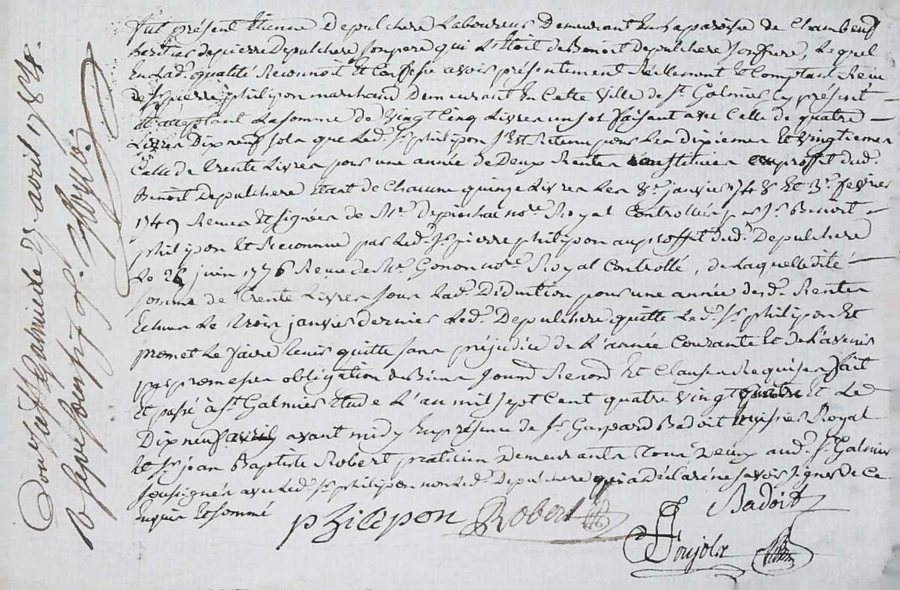 Fut présent Etienne Depulchere Laboureur Demeurant En La paroisse de Chambeuf
heritier de pierre Depulchere son pere qui L'Etoit de Benoit Depulchere son frere, Lequel
En Lad. qualité Reconnoit et Confesse avoir présentement Réellement et Comptant Reçu
de Sr. pierre philipon marchand Demeurant En Cette Ville de St. Galmier cy présent
et acceptant La somme de Vingt Cinq Livres un sol faisant avec Celle de quatre
Livres Dix neuf sols que Led. Sr. philipon s'Est Retenu pour Les Dixiemes et Vingtiemes
Celle de trente Livres pour une année de Deux Rentes Constituées au proffit dud.
Benoit Depulchere Etant de Chacune quinze Livres Les 8e. janvier 1748 Et 3e. fevrier
1749 Reçues Et signées de Me. nore. Royal Controllées par Sr. Benoit
philipon Et Reconnue par Led. Sr. pierre philipon au proffit dud. Depulchere
Le 26 juin 1776 Reçue de Me. Gonon nore. Royal Controllé, de Laquelle dite
somme de trente Livres sous Lad. Diduction pour une année desd. Rentes
Echue Le trois janvier dernier Led. Depulchere quitte Led. Sr. philipon Et
promet Le faire tenir quitte sans préjudice de L'année Courante Et de L'avenir
par promesses obligation de Biens Renond Et Clauses Requises fait
Et passé à St. Galmier Etude L'an mil sept Cent quatre Vingt quatre Et Le
Dix neuf avril avant midy En présence de Sr. Gaspard Badoit huissier Royal
Et Sr. jean Baptiste Robert praticien Demeurants Tous Deux aud. St. Galmier
soussignés avec Led. Sr. philipon non Led. Depulchere qui a Déclaré ne savoir signer de Ce
Enquis Et sommé
philipon Robert Badoit
Soujolz
St. Galmier le 23 avril 1784